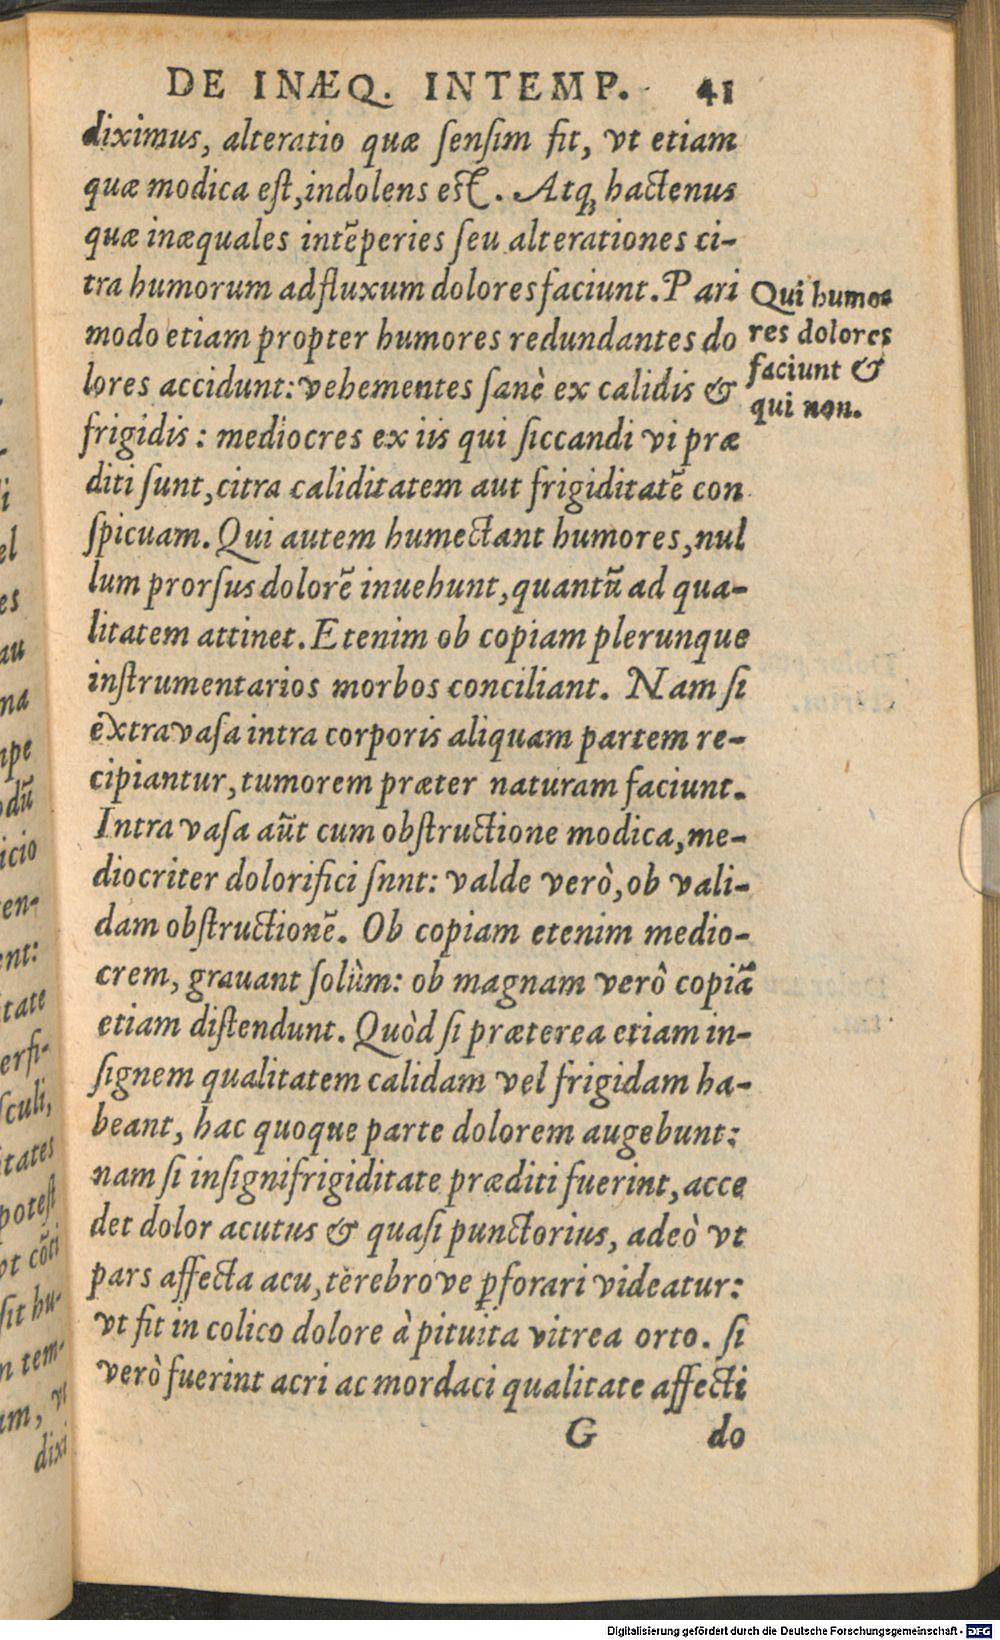 DE INÆQ. INTEMP. 41
diximus, alteratio quæ ſenſim fit, vt etiam
quæ modica eſt, indolens eſt. Atq; hactenus
quæ inæquales intẽperies ſeu alterationes ci-
tra humorum adfluxum dolores faciunt. Pari
modo etiam propter humores redundantes do
lores accidunt: vehementes ſanè ex calidis &
frigidis: mediocres ex iis qui ſiccandi vi præ
diti ſunt, citra caliditatem aut frigiditatẽ con
ſpicuam. Qui autem humectant humores, nul
lum prorſus dolorẽ inuehunt, quantũ ad qua-
litatem attinet. Etenim ob copiam plerunque
inſtrumentarios morbos conciliant. Nam ſi
extra vaſa intra corporis aliquam partem re-
cipiantur, tumorem præter naturam faciunt.
Intra vaſa aũt cum obſtructione modica, me-
diocriter dolorifici ſnnt: valde verò, ob vali-
dam obſtructionẽ. Ob copiam etenim medio-
crem, grauant ſolùm: ob magnam verò copiã
etiam diſtendunt. Quòd ſi præterea etiam in-
ſignem qualitatem calidam vel frigidam ha-
beant, hac quoque parte dolorem augebunt:
nam ſi inſigni frigiditate præditi fuerint, acce
det dolor acutus & quaſi punctorius, adeò vt
pars affecta acu, terebrove ꝑforari videatur:
vt fit in colico dolore à pituita vitrea orto. ſi
verò fuerint acri ac mordaci qualitate affecti
G do
Qui humo-
res dolores
faciunt &
qui non.
el
es
au
ma
mpe
odũ
icio
en-
ent:
itate
erfi-
ſculi,
itates
poteſt
vt cõti
ſit hu-
n tem-
um, vt
dixi
Digitalisierung gefördert durch die Deutsche Forschungsgemeinschaft - DFG